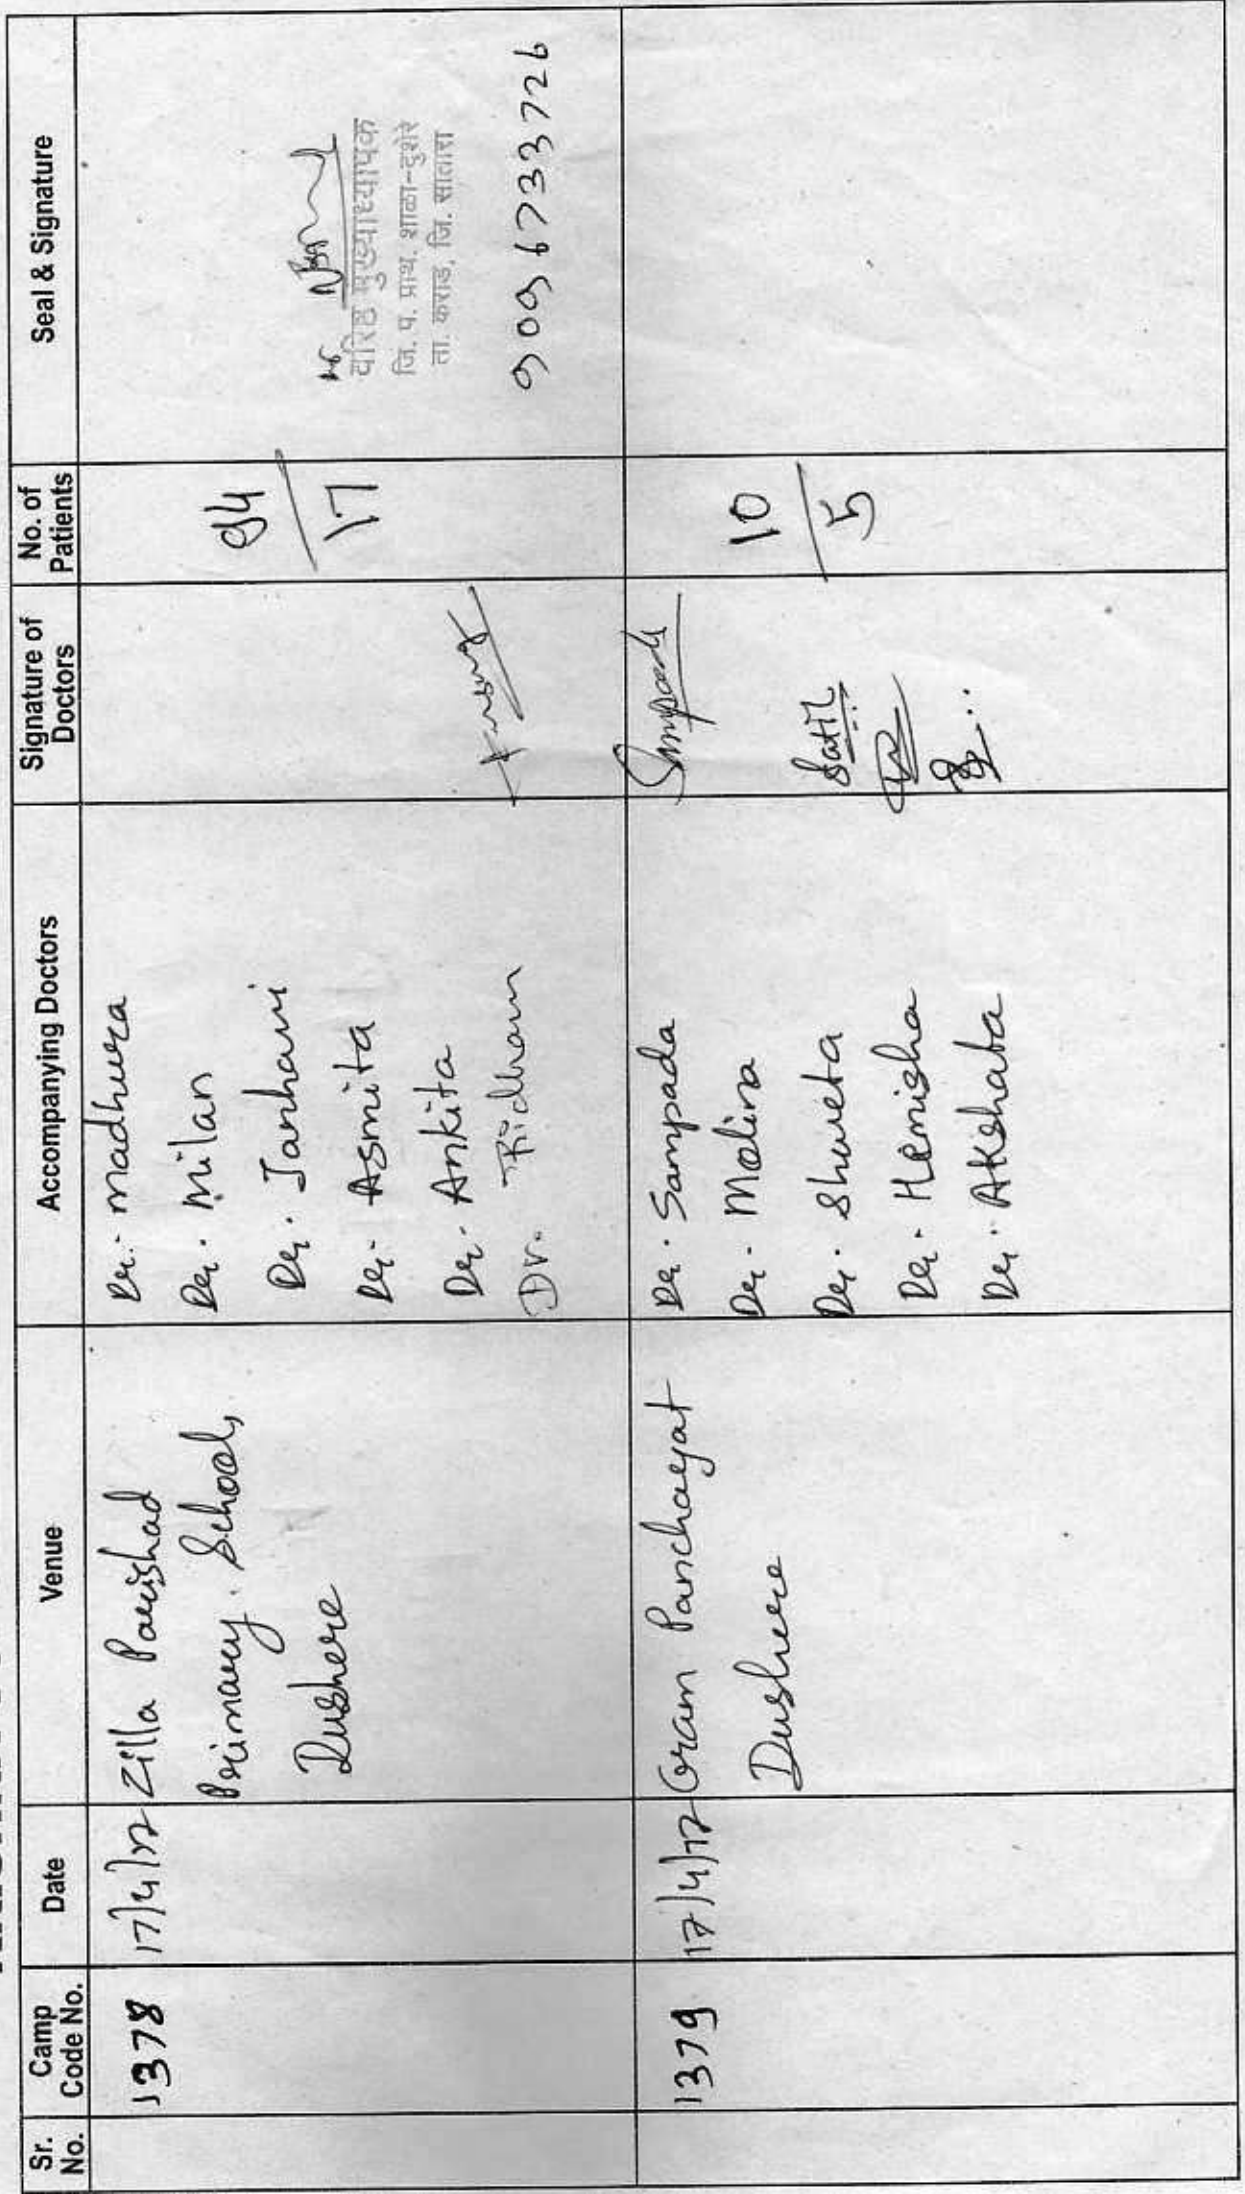 Sr. No.
Camp Code No.
Date
Venue
Accompanying Doctors
Signature of Doctors
No. of Patients
Seal & Signature
1378
17/4/22
Zilla Parishad
Primary. School,
Dushere
Dr. madhura
Dr. Milan
Dr. Janhavi
Dr. Asmita
Dr. Ankita
Dr. Ridham
94
17
वरिष्ठ मुख्याध्यापक
जि. प. प्राथ. शाळा-दुशेरे
ता. कराड, जि. सातारा
9096733726
1379
17/4/22
Gram Panchayat
Dushere
Dr. Sampada
Dr. Malina
Dr. Shweta
Dr. Hemisha
Dr. Akshata
Sampada
Patil
10
5